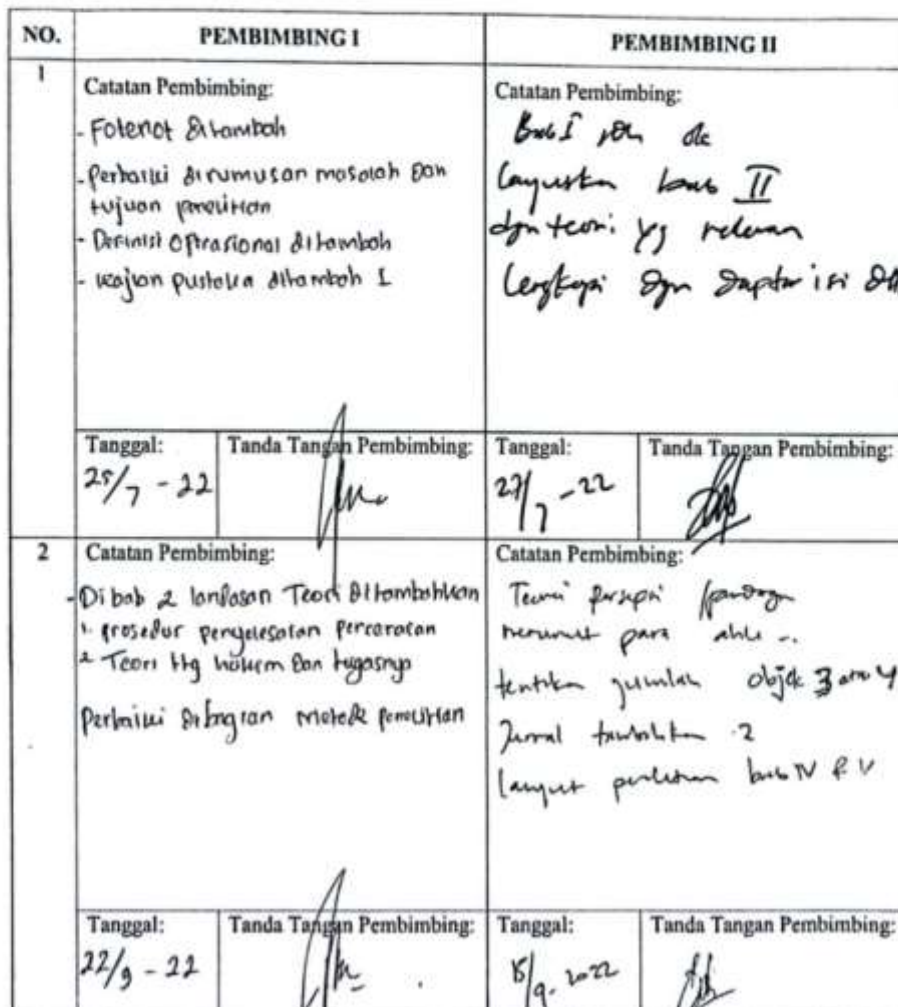 NO. PEMBIMBING I PEMBIMBING II
1
Catatan Pembimbing:
- Fotenot ditambah
- Perbaiki dirumusan masalah dan
tujuan penelitian
- Definisi Oprasional ditambah
- kajian pustaka ditambah 1
Catatan Pembimbing:
Bab I
lanjutkan bab II
dgn teori yg relevan
lengkapi dgn daptar isi dll
Tanggal:
25/7 - 22
Tanda Tangan Pembimbing:
Tanggal:
27/7 - 22
Tanda Tangan Pembimbing:
2
Catatan Pembimbing:
- Di bab 2 landasan Teori ditambahkan
1. prosedur penyelesaian percaraian
2 Teori ttg hakim dan tugasnya
Perbaiki dibagian metode penelitian
Catatan Pembimbing:
Teori persepsi / pandangan
menurut para ahli
tentukan jumlah objek 3 atau 4
Jurnal tambahkan 2
lanjut penelitian bab IV & V
Tanggal:
22/9 - 22
Tanda Tangan Pembimbing:
Tanggal:
15/9. 2022
Tanda Tangan Pembimbing: